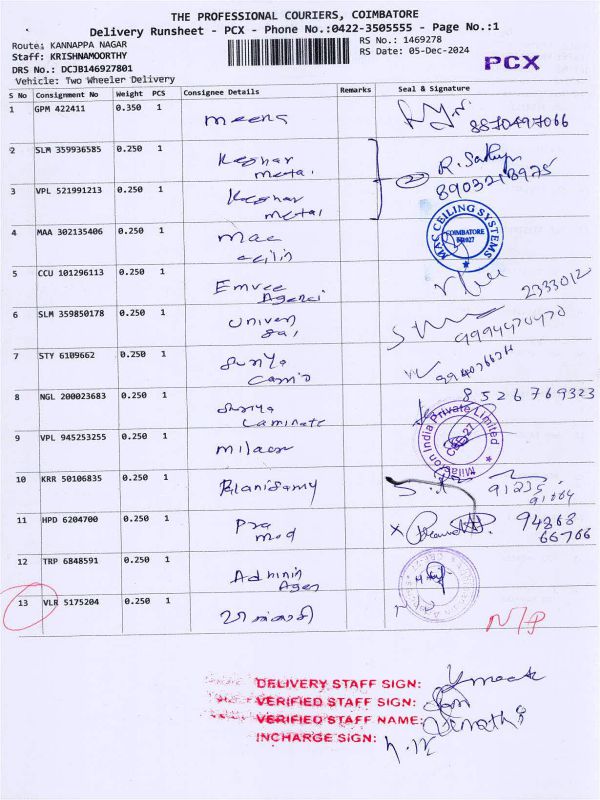 THE PROFESSIONAL COURIERS, COIMBATORE
Delivery Runsheet - PCX - Phone No.:0422-3505555 - Page No.:1
Route: KANNAPPA NAGAR
RS No.: 1469278
Staff: KRISHNAMOORTHY
RS Date: 05-Dec-2024
PCX
DRS No.: DCJB146927801
Vehicle: Two Wheeler Delivery
S No Consignment No Weight PCS Consignee Details Remarks Seal & Signature
1 GPM 422411 0.350 1 meena 8870497066
2 SLM 359936585 0.250 1 Keshar metal R. Sathya
3 VPL 521991213 0.250 1 Keshar metal 8903218975
4 MAA 302135406 0.250 1 mac ceilin MAC CEILING SYSTEMS COIMBATORE
5 CCU 101296113 0.250 1 Emvee Agenci 2333012
6 SLM 359850178 0.250 1 univer sal 9994470470
7 STY 6109662 0.250 1 surya
8 NGL 200023683 0.250 1 surya Laminate 8526769323
9 VPL 945253255 0.250 1 milacron Milacron India Private Limited CBE-27
10 KRR 50106835 0.250 1 Palanisamy 91235
11 HPD 6204700 0.250 1 Pra mod 94868 66766
12 TRP 6848591 0.250 1 Adminin Agen
13 VLR 5175204 0.250 1 N/P
DELIVERY STAFF SIGN:
VERIFIED STAFF SIGN:
VERIFIED STAFF NAME:
INCHARGE SIGN: